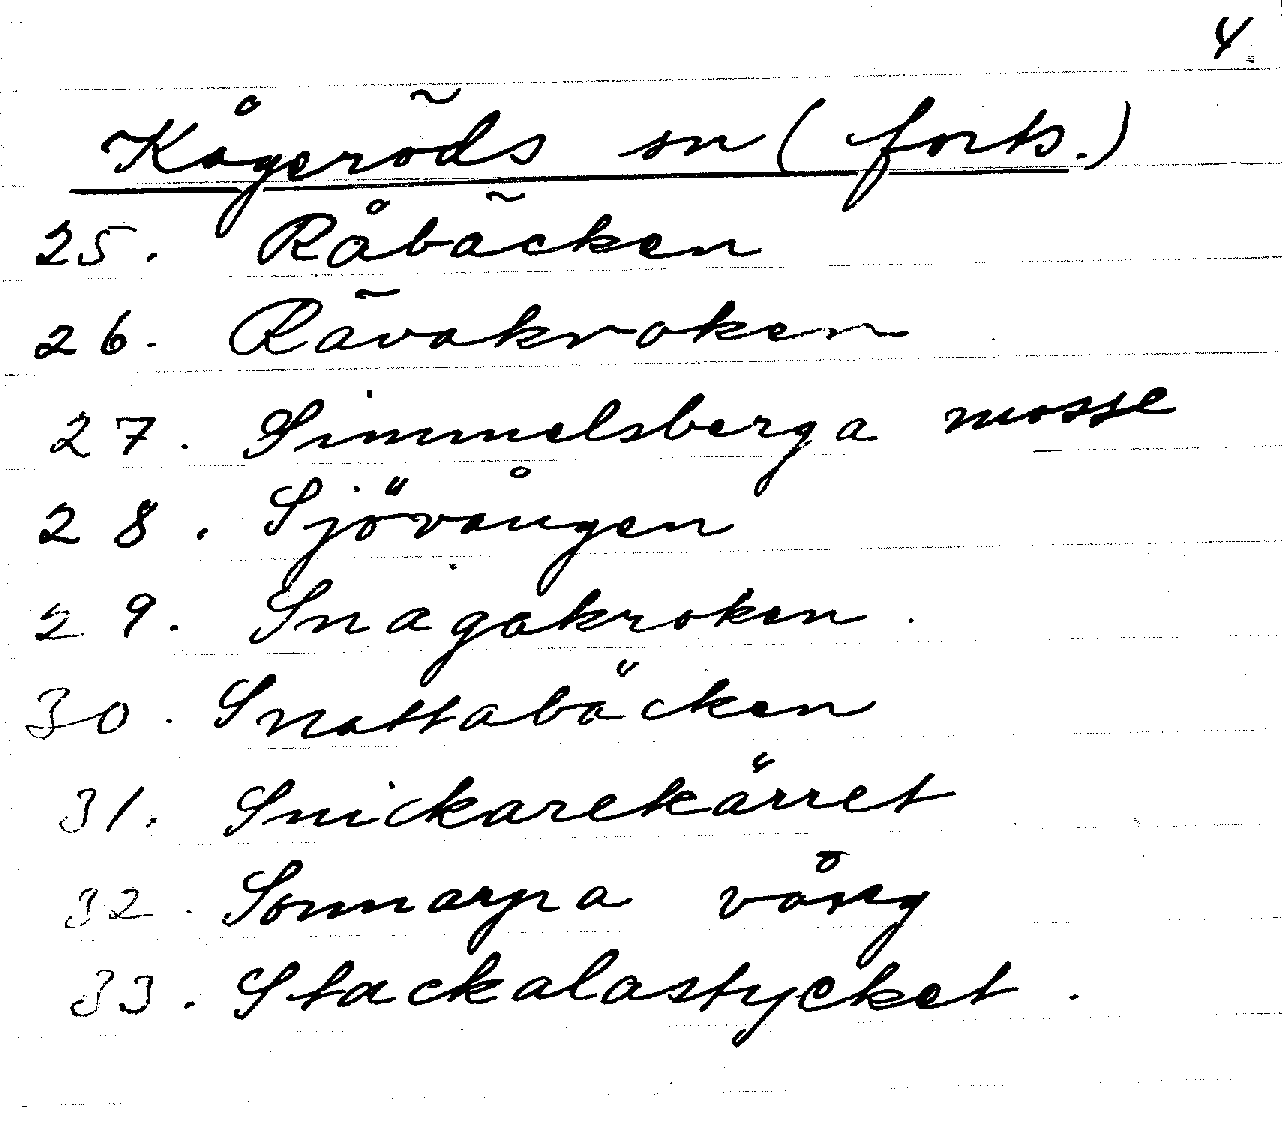 4.
Kågeröds sn (forts.)
25. Råbäcken
26. Rävakroken
27. Simmelsberga mosse
28. Sjövången
29. Snagakroken.
30. Snattabäcken
31. Snickarekärret
32. Sonnarpa vång
33. Stackalastycket.